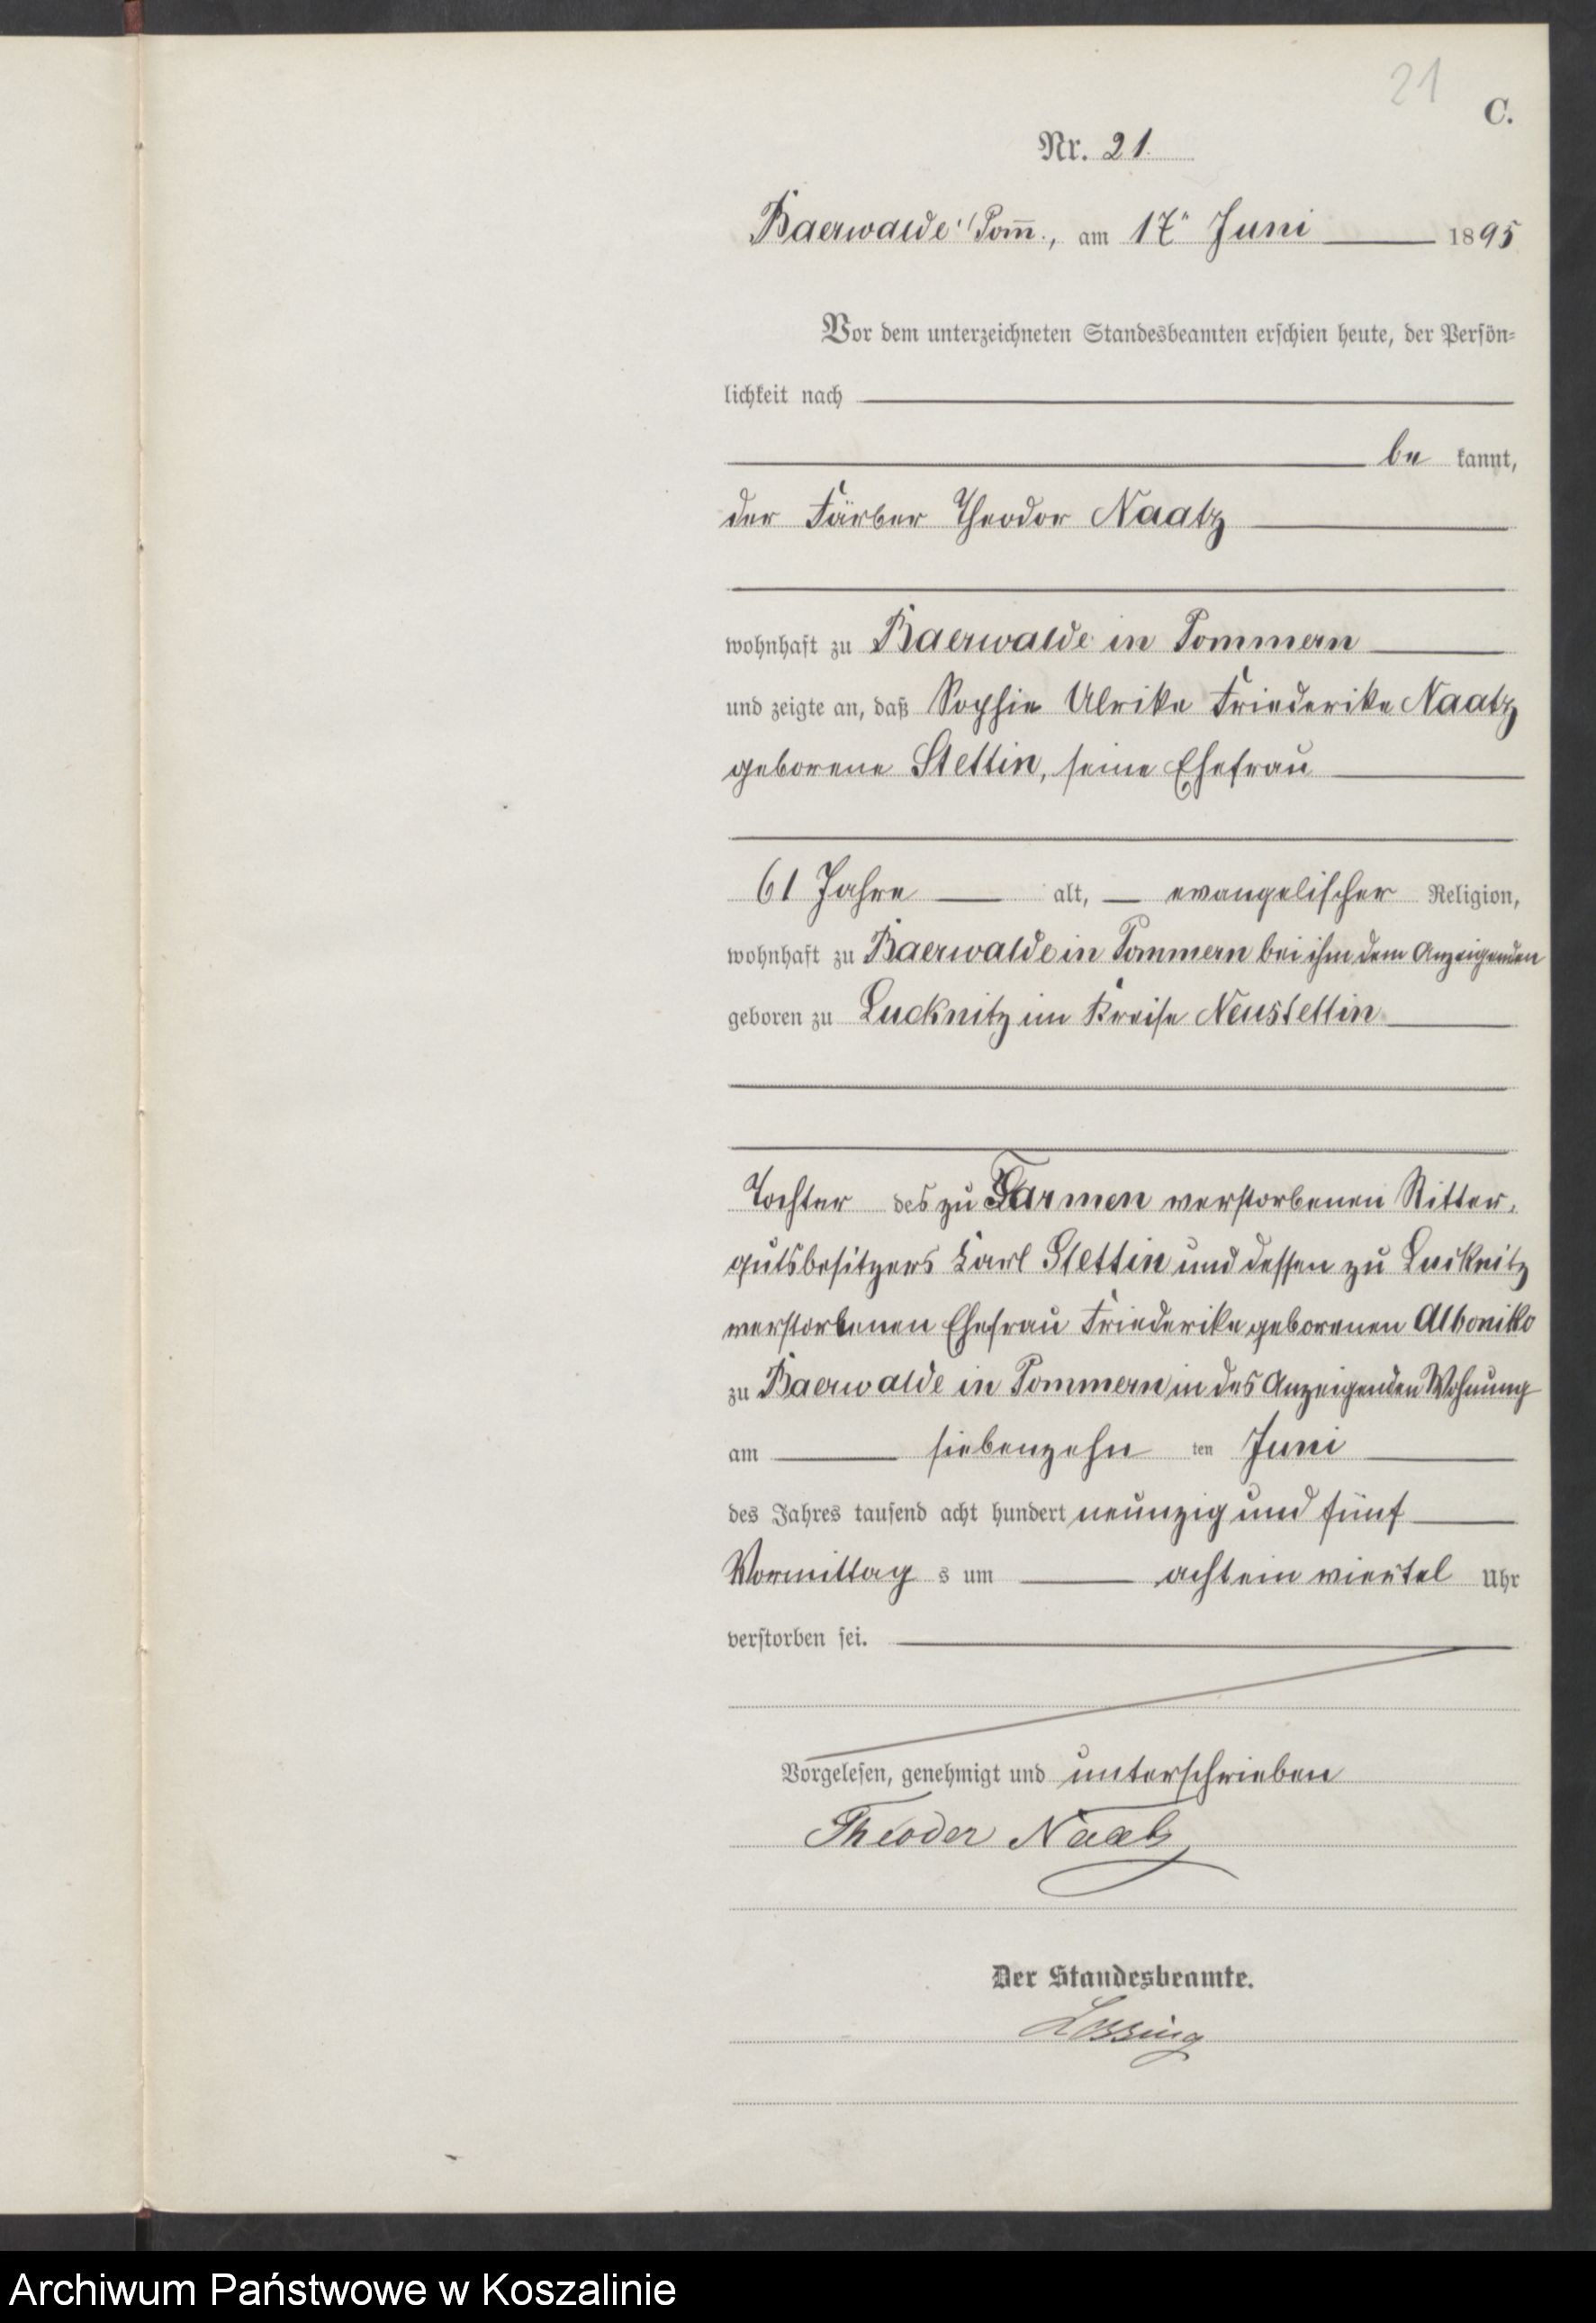 21
C.
Nr. 21.
Baerwalde i/Pom̅., am 17ᵗ Juni 1895
Vor dem unterzeichneten Standesbeamten erschien heute, der Persön-
lichkeit nach
be kannt,
der Färber Theodor Naatz
wohnhaft zu Baerwalde in Pommern
und zeigte an, daß Sophie Ulrike Friederike Naatz
geborene Stettin, seine Ehefrau
61 Jahre alt, evangelischer Religion,
wohnhaft zu Baerwalde in Pommern bei ihm dem Anzeigenden
geboren zu Lucknitz im Kreise Neustettin
Tochter des zu Farmen verstorbenen Ritter-
gutsbesitzers Karl Stettin und dessen zu Lucknitz
verstorbenen Ehefrau Friederike geborenen Alboniko
zu Baerwalde in Pommern in des Anzeigenden Wohnung
am siebenzehn ten Juni
des Jahres tausend acht hundert neunzig und fünf
Vormittag s um acht ein viertel Uhr
verstorben sei.
Vorgelesen, genehmigt und unterschrieben
Theoder Naatz
Der Standesbeamte.
Archiwum Państwowe w Koszalinie